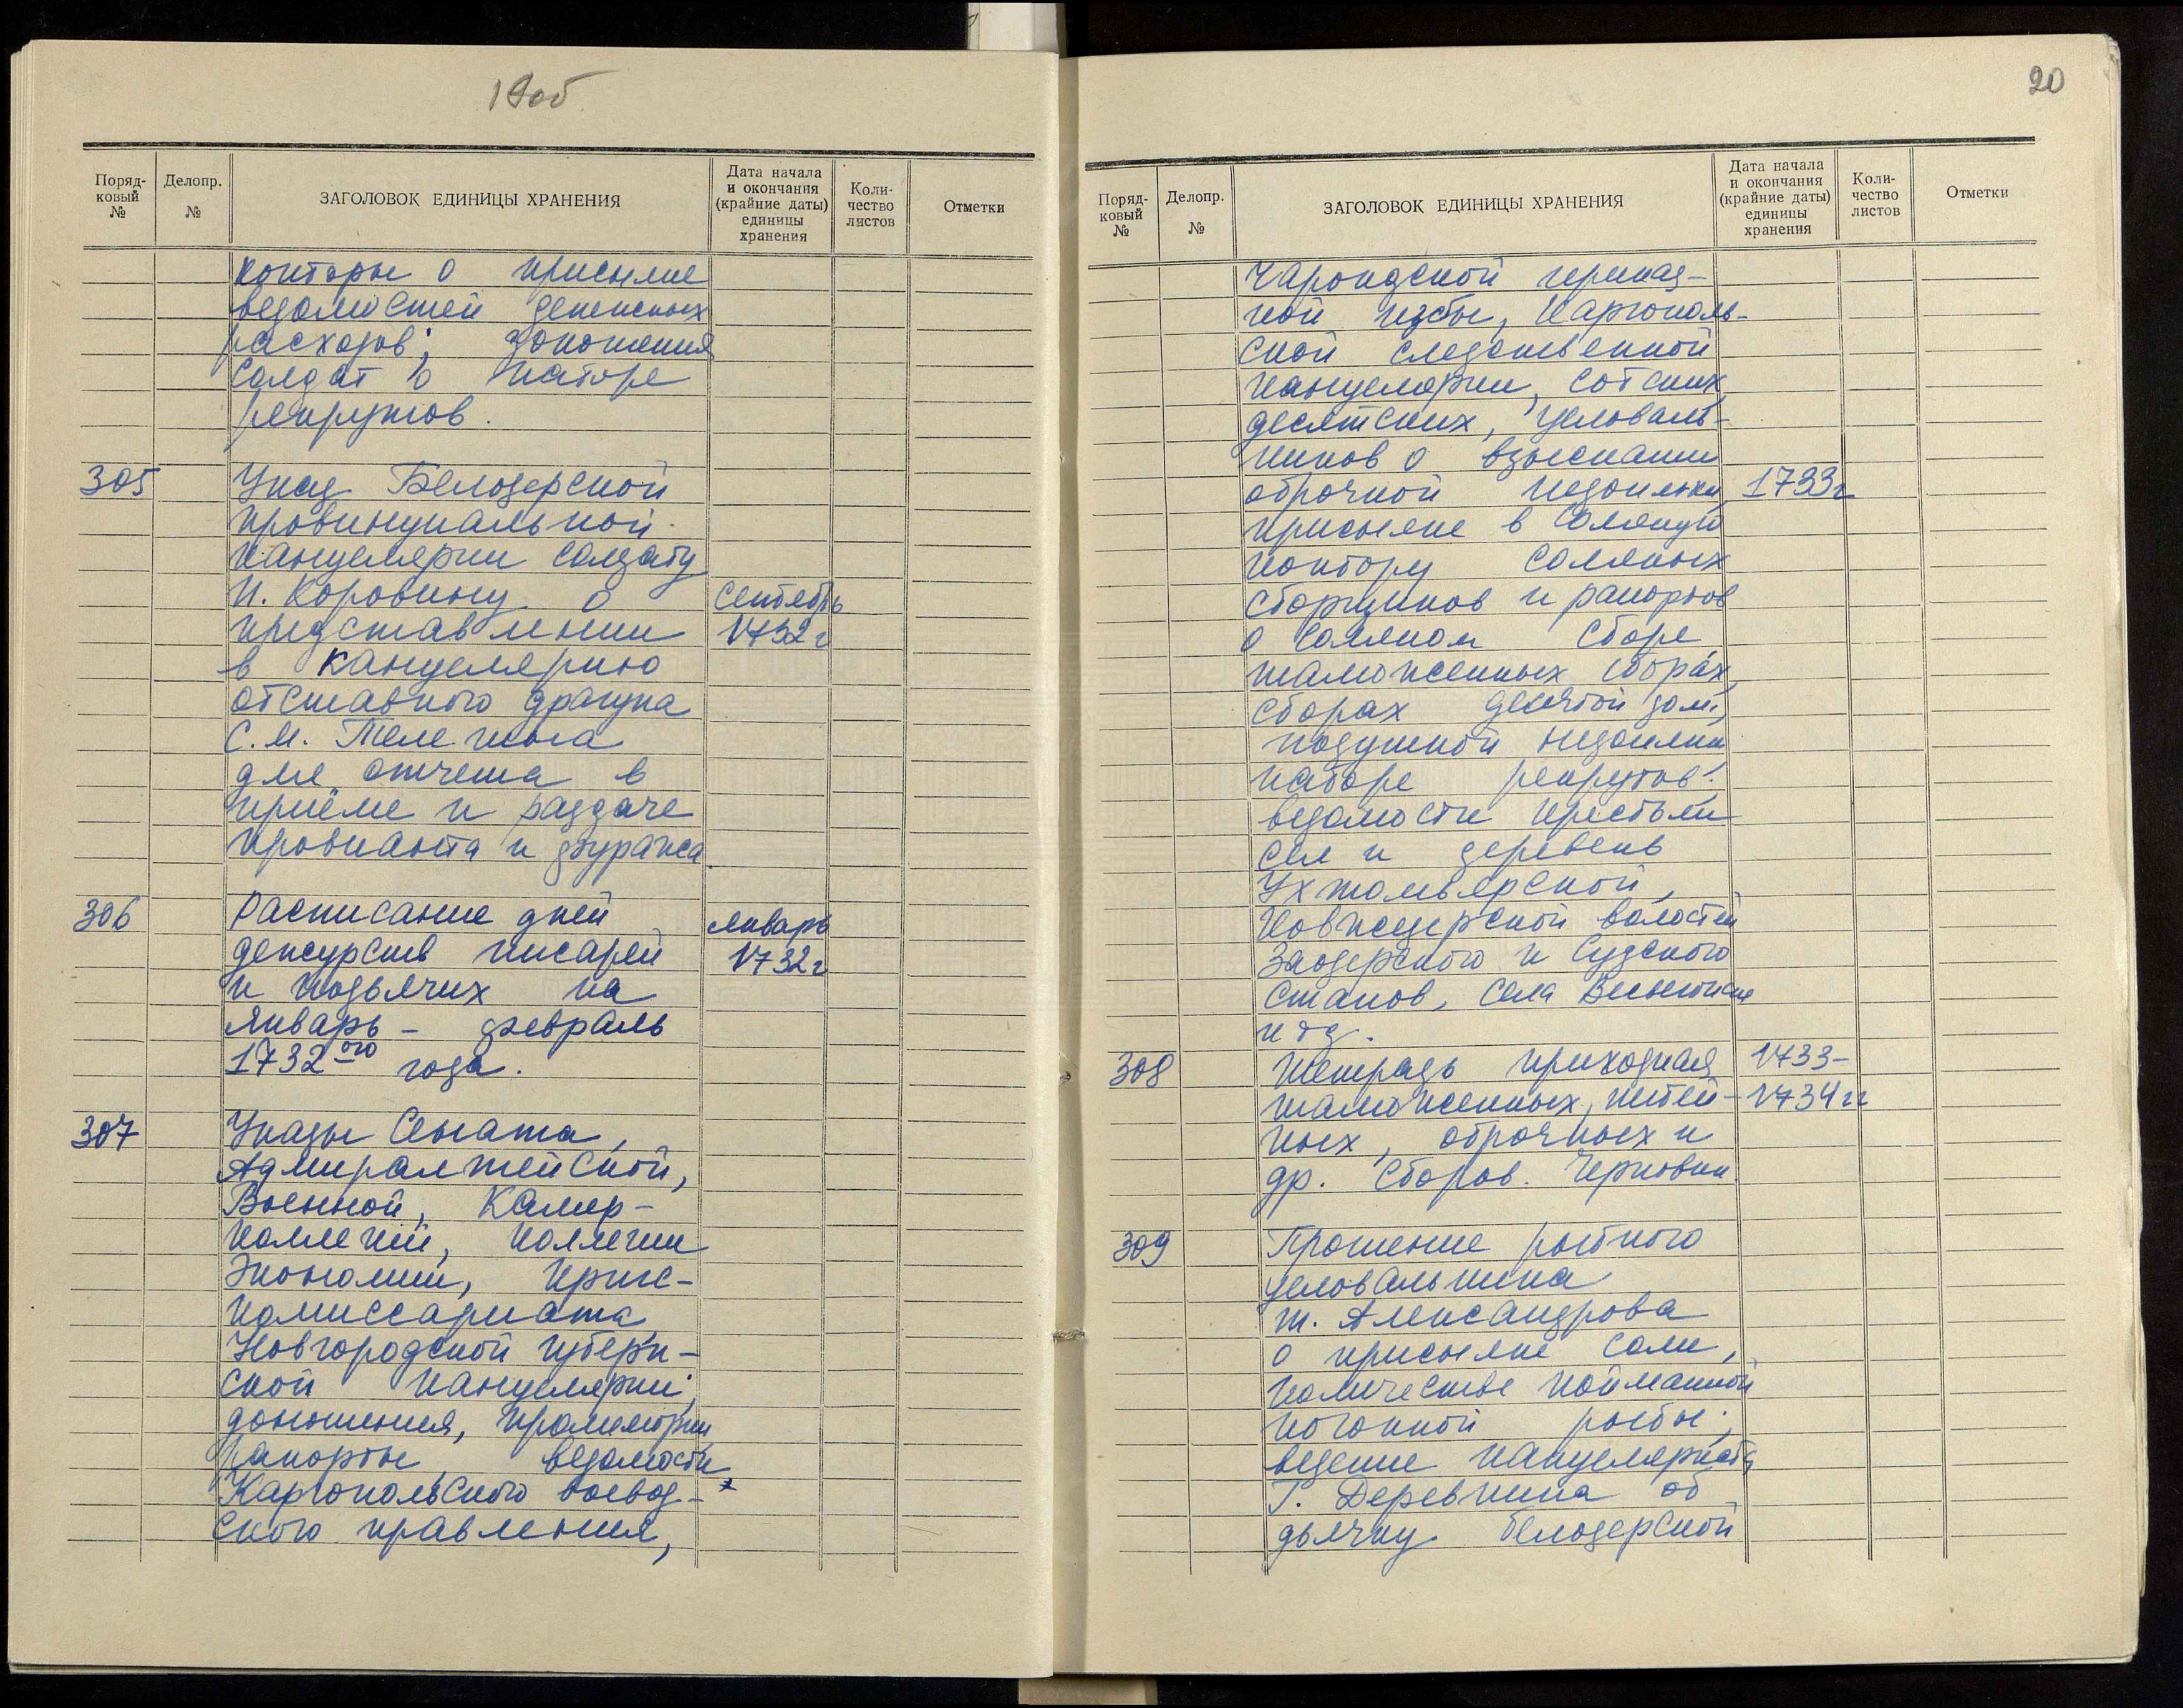 19об
Поряд-
ковый
№
Делопр.
№
ЗАГОЛОВОК ЕДИНИЦЫ ХРАНЕНИЯ
Дата начала
и окончания
(крайние даты)
единицы
хранения
Коли-
чество
листов
Отметки
конторы о присылке
ведомостей денежных
расходов; доношения
солдат о наборе
рекрутов.
305 Указ Белозерской
провинциальной
канцелярии солдату
И. Коровину о сентябрь
представлении 1732 г
в канцелярию
отставного драгуна
С. И. Телегина
для отчета в
приёме и раздаче
провианта и фуража
306 Расписание дней январь
дежурств писарей 1732 г
и подьячих на
январь – февраль
1732ого года.
307 Указы Сената,
Адмиралтейской,
Военной, Камер-
коллегий, коллегии
Экономии, Кригс-
комиссариата
Новгородской губерн-
ской канцелярии;
доношения, промемории
рапорты ведомости
Каргопольского воевод-
ского правления,
20
Поряд-
ковый
№
Делопр.
№
ЗАГОЛОВОК ЕДИНИЦЫ ХРАНЕНИЯ
Дата начала
и окончания
(крайние даты)
единицы
хранения
Коли-
чество
листов
Отметки
Чарондской приказ-
ной избы, Каргополь-
ской следственной
канцелярии, сотских,
десятских, целоваль-
ников о взыскании
оброчной недоимки, 1733 г
присылке в Соляную
контору соляных
сборщиков и рапортов
о соляном сборе
таможенных сборах,
сборах десятой доли,
подушной недоимки
наборе рекрутов;
ведомости крестьян
сел и деревень
Ухтомьярской,
Ковжезерской волостей
Заозерского и Судского
станов, села
и тд.
308 Тетрадь приходная 1733-
таможенных, питей- 1734 гг
ных, оброчных и
др. сборов. Черновик
309 Прошение рыбного
целовальника
т. Александрова
о присылке соли,
количестве пойманной
погонной рыбы;
ведение канцеляриста
Г. Деревнина об
дьячку белозерской